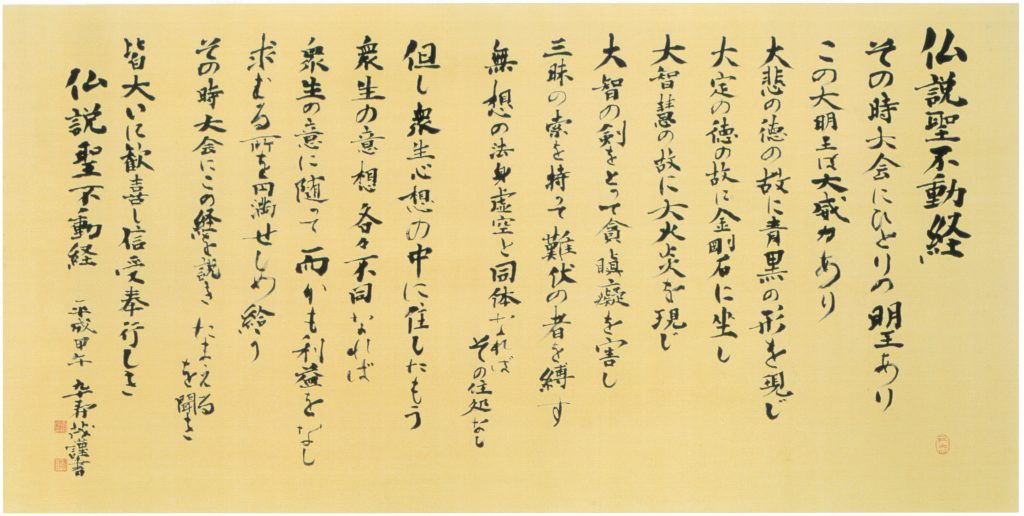 仏説聖不動経
その時大会にひとりの明王あり
この大明王は大威力あり
大悲の徳の故に青黒の形を現じ
大定の徳の故に金剛石に坐し
大智慧の故に大火炎を現じ
大智の剣をとって貪瞋癡を害し
三昧の索を持って難伏の者を縛す
無想の法身虚空と同体なれば
その住処なし
但し衆生心想の中に住したもう
衆生の意想各々不同なれば
衆生の意に随って而かも利益をなし
求むる所を円満せしめ給う
その時大会にこの経を説きたまえる
を聞き
皆大いに歓喜し信受奉行しき
仏説聖不動経
平成甲午 謹書